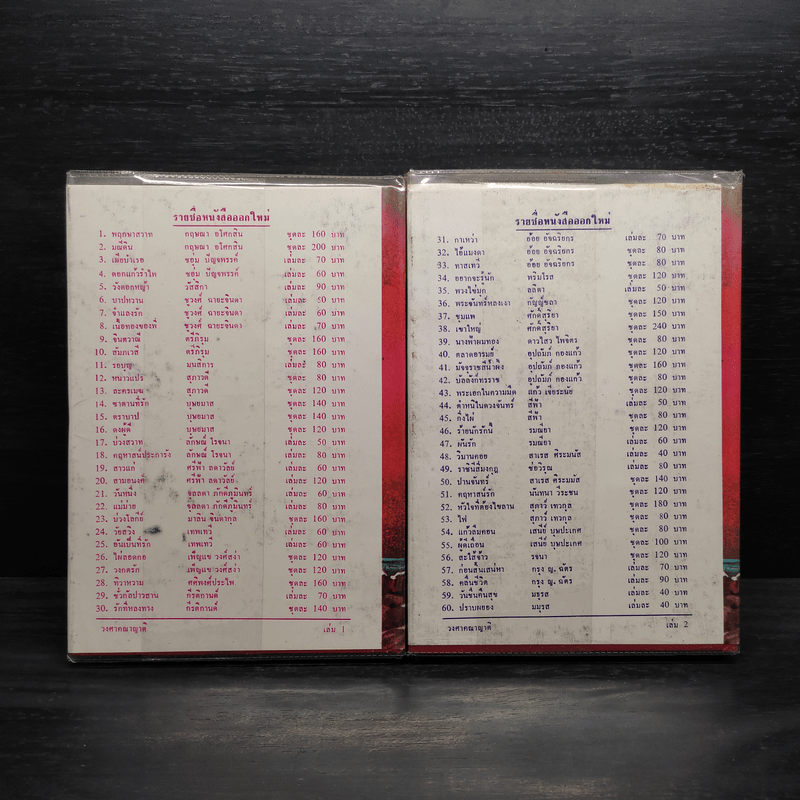 รายชื่อหนังสือออกใหม่
1. พฤกษาสวาท กฤษณา อโศกสิน ชุดละ 160 บาท
2. มณีดิน กฤษณา อโศกสิน ชุดละ 200 บาท
3. เมียบำเรอ ชอุ่ม ปัญจพรรค์ เล่มละ 70 บาท
4. ดอกแก้วรำไพ ชอุ่ม ปัญจพรรค์ เล่มละ 60 บาท
5. วังดอกหญ้า วัสสิกา เล่มละ 90 บาท
6. บาปหวาน ชูวงศ์ ฉายะจินดา เล่มละ 50 บาท
7. จำแลงรัก ชูวงศ์ ฉายะจินดา เล่มละ 60 บาท
8. เนื้อทองของพี่ ชูวงศ์ ฉายะจินดา เล่มละ 70 บาท
9. จินตวาณี ตรีภิรุม ชุดละ 160 บาท
10. สัมภเวสี ตรีภิรุม ชุดละ 160 บาท
11. รอยบุญ มนสิการ เล่มละ 80 บาท
12. หนาวแปร สุภาวดี ชุดละ 80 บาท
13. ละครเมฆ สุภาวดี ชุดละ 120 บาท
14. ซาตานที่รัก บุษยมาส ชุดละ 140 บาท
15. ตราบาป บุษยมาส ชุดละ 140 บาท
16. ดงผู้ดี บุษยมาส ชุดละ 120 บาท
17. บ่วงสวาท ลักษณ์ โรจนา เล่มละ 50 บาท
18. คฤหาสน์ปะการัง ลักษณ์ โรจนา ชุดละ 80 บาท
19. สาวแก่ ศรีฟ้า ลดาวัลย์ เล่มละ 60 บาท
20. สามอนงค์ ศรีฟ้า ลดาวัลย์ ชุดละ 120 บาท
21. วันหนึ่ง จุลลดา ภักดีภูมินทร์ เล่มละ 60 บาท
22. แม่ม่าย จุลลดา ภักดีภูมินทร์ เล่มละ 80 บาท
23. บ่วงโลกีย์ มาลิน จินดากุล ชุดละ 160 บาท
24. วัยสวิง เทพเทวี เล่มละ 60 บาท
25. อันเป็นที่รัก เทพเทวี เล่มละ 60 บาท
26. ไผ่ลอดกอ เพ็ญแข วงศ์สง่า ชุดละ 120 บาท
27. วงกตรัก เพ็ญแข วงศ์สง่า ชุดละ 120 บาท
28. ทิวาหวาม ศศิพงศ์ประไพ ชุดละ 160 บาท
29. ชั่วกัลปาวสาน กีรติกานต์ เล่มละ 70 บาท
30. รักที่หลงทาง กีรติกานต์ ชุดละ 140 บาท
วงศาคณาญาติ เล่ม 1
รายชื่อหนังสือออกใหม่
31. กาเหว่า อ้อย อัจฉริยกร เล่มละ 70 บาท
32. ไอ้แมงดา อ้อย อัจฉริยกร ชุดละ 80 บาท
33. ทาสเทวี อ้อย อัจฉริยกร ชุดละ 80 บาท
34. อยากจะรู้นัก พริมโรส ชุดละ 120 บาท
35. พวงไข่มุก ลลิตา เล่มละ 50 บาท
36. พระจันทร์หลงเงา กัญญ์ชลา ชุดละ 120 บาท
37. ชุมแพ ศักดิ์สุริยา ชุดละ 150 บาท
38. เขาใหญ่ ศักดิ์สุริยา ชุดละ 240 บาท
39. นางฟ้าผมทอง ดาวไสว ไพจิตร ชุดละ 80 บาท
40. ตลาดอารมย์ อุปถัมภ์ กองแก้ว ชุดละ 120 บาท
41. มัจจุราชสีน้ำผึ้ง อุปถัมภ์ กองแก้ว ชุดละ 160 บาท
42. บัลลังก์ทรราช อุปถัมภ์ กองแก้ว ชุดละ 80 บาท
43. พระเอกในความมืด แก้ว เจียระนัย ชุดละ 120 บาท
44. ตำหนิในดวงจันทร์ สีฟ้า เล่มละ 50 บาท
45. กิ่งไผ่ สีฟ้า ชุดละ 80 บาท
46. ร้ายนักรักนี้ รมณียา ชุดละ 120 บาท
47. ผันรัก รมณียา เล่มละ 60 บาท
48. วิมานคอย สาเรส ศิระมนัส เล่มละ 40 บาท
49. ราชินีสี่มงกุฎ ช่อวิรุณ เล่มละ 80 บาท
50. ปานจันทร์ สาเรส ศิระมนัส ชุดละ 140 บาท
51. คฤหาสน์รัก นันทนา วีระชน ชุดละ 120 บาท
52. หัวใจที่ต้องไขลาน สุภาว์ เทวกุล ชุดละ 180 บาท
53. ไฟ สุภาว์ เทวกุล ชุดละ 80 บาท
54. แก้วลืมคอน เสนีย์ บุษปะเกศ ชุดละ 80 บาท
55. ผู้ดีเถื่อน เสนีย์ บุษปะเกศ ชุดละ 100 บาท
56. สะใภ้จ้าว รจนา ชุดละ 120 บาท
57. ก่อนสิ้นเสน่หา กรุง ญ. ฉัตร เล่มละ 70 บาท
58. คลื่นชีวิต กรุง ญ. ฉัตร เล่มละ 90 บาท
59. วันชื่นคืนสุข มธุรส เล่มละ 40 บาท
60. ปราบพยอง มธุรส เล่มละ 40 บาท
วงศาคณาญาติ เล่ม 2